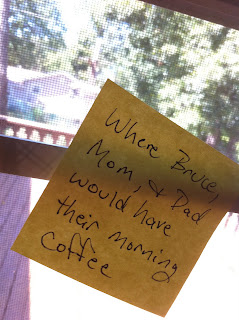 Where Bruce,
Mom, & Dad
would have
their morning
coffee